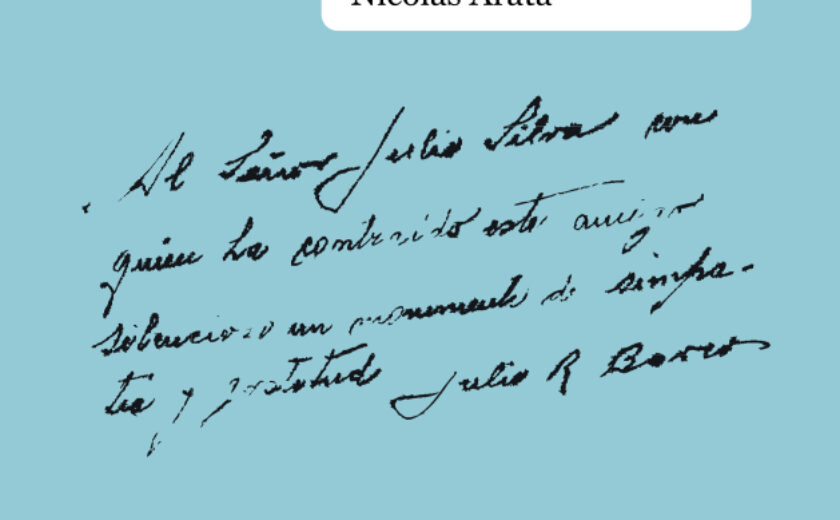 Nicolás Arata
Al Señor Julio Silva con
quien ha contraido este amigo
silencioso un monumento de simpa-
tia y gratitud Julio R Barcos